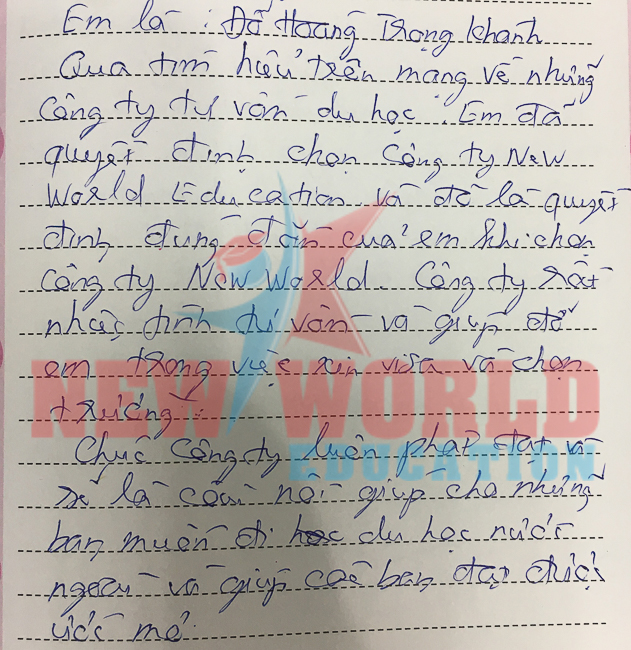 Em là : Đỗ Hoàng Trọng Khanh
Qua tìm hiểu trên mạng về những
Công ty tư vấn du học. Em đã
quyết định chọn Công ty New
World Education và đó là quyết
định đúng đắn của em khi chọn
Công ty New World. Công ty rất
nhiệt tình tư vấn và giúp đỡ
em trong việc xin visa và chọn
trường.
Chúc Công ty luôn phát đạt và
sẽ là cầu nối giúp cho những
bạn muốn đi học du học nước
ngoài và giúp các bạn đạt được
ước mơ.
NEW WORLD
EDUCATION